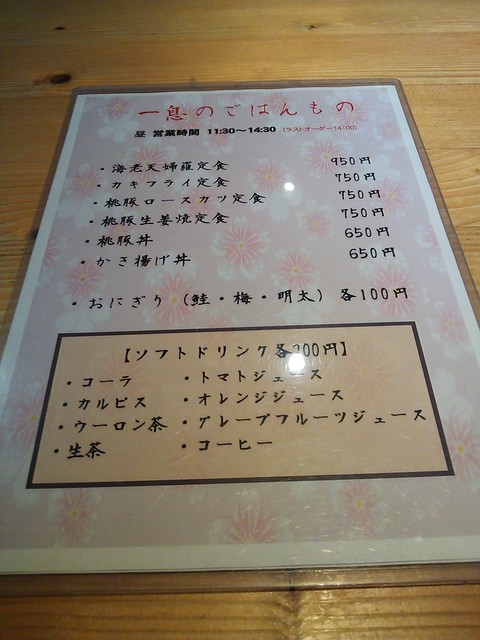 一息のごはんもの
昼 営業時間 11:30〜14:30 (ラストオーダー14:00)
・海老天婦羅定食 950円
・カキフライ定食 750円
・桃豚ロースカツ定食 750円
・桃豚生姜焼定食 750円
・桃豚丼 650円
・かき揚げ丼 650円
・おにぎり (鮭・梅・明太) 各100円
【ソフトドリンク各 00円】
・コーラ ・トマトジュース
・カルピス ・オレンジジュース
・ウーロン茶 ・グレープフルーツジュース
・生茶 ・コーヒー